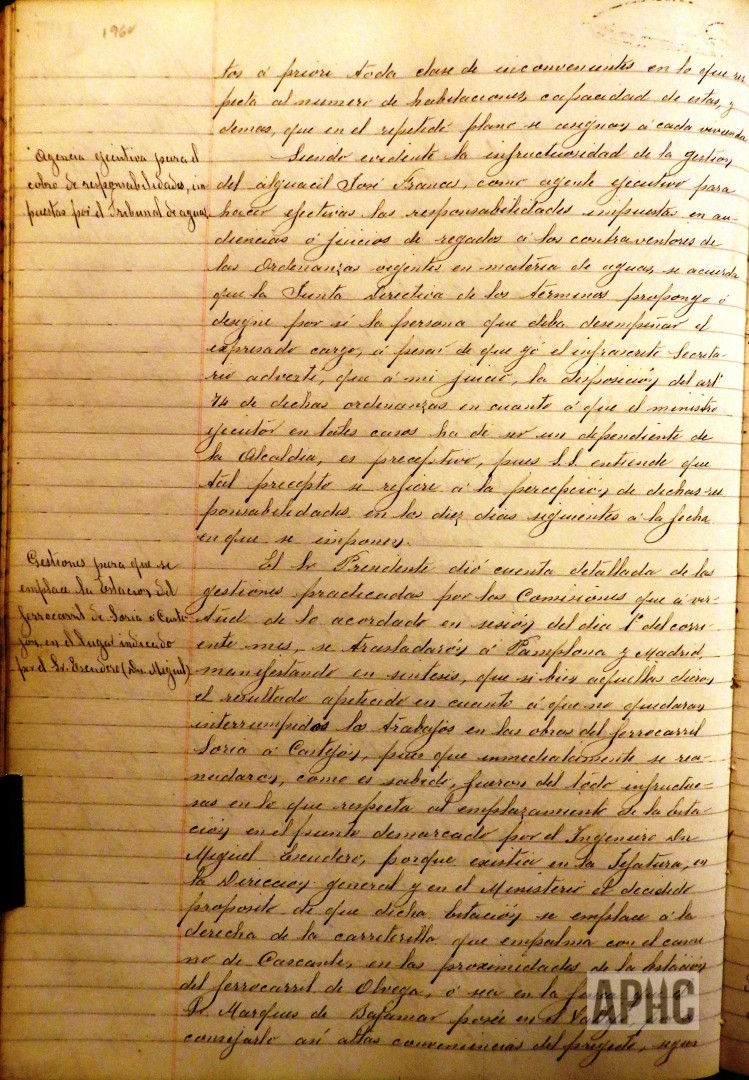 196
tos á priori toda clase de inconvenientes en lo que res
pecta al numero de habitaciones, capacidad de estas, y
demas, que en el repetido plano se asignan á cada vivienda
Agencia ejecutiva para el
cobro de responsabilidades, im
puestas por el Tribunal de aguas.
Siendo evidente la infructuosidad de la gestion
del alguacil José Frances, como agente ejecutivo para
hacer efectivas las responsabilidades impuestas en au-
diencias ó juicios de regados á los contraventores de
las Ordenanzas vigentes en materia de aguas, se acuerda
que la Junta Directiva de los términos proponga ó
designe por sí la persona que deba desempeñar el
expresado cargo, á pesar de que yó el infrascrito Secreta-
rio advertí, que á mi juicio, la disposición del artº
74 de dichas ordenanzas en cuanto á que el ministro
ejecutor en tales casos ha de ser un dependiente de
la Alcaldia, es preceptivo, pues S.S. entiende que
tal precepto se refiere á la percepción de dichas res
ponsabilidades en los diez dias siguientes á la fecha
en que se imponen.
Gestiones para que se
emplace la Estacion del
ferrocarril de Soria á Caste-
jón, en el lugar indicado
por el Sr. Escudero (Dn. Miguel)
El Sr. Presidente dió cuenta detallada de las
gestiones practicadas por las Comisiones que á vir-
tud de lo acordado en sesión del dia 1º del corri-
ente mes, se trasladarón á Pamplona y Madrid
manifestando en sintesis, que si bien aquellas dieron
el resultado apetecido en cuanto á que no quedaran
interrumpidos los trabajos en las obras del ferrocarril
Soria á Castejón, pues que inmediatamente se rea-
nudaron, como es sabido, fueron del todo infructuo-
sas en lo que respecta al emplazamiento de la Esta-
ción en el punto demarcado por el Ingeniero Dn.
Miguel Escudero, porque existia en la Jefatura, en
la Direccion general y en el Ministerio el decidido
proposito de que dicha Estación se emplace á la
derecha de la carreterilla que empalma con el cami
no de Cascante, en las proximidades de la Estación
del ferrocarril de Olvega, ó sea en la finca que el
Sr. Marques de Bajamar posée en el
consejarlo así altas conveniencias del proyecto, segun
APHC